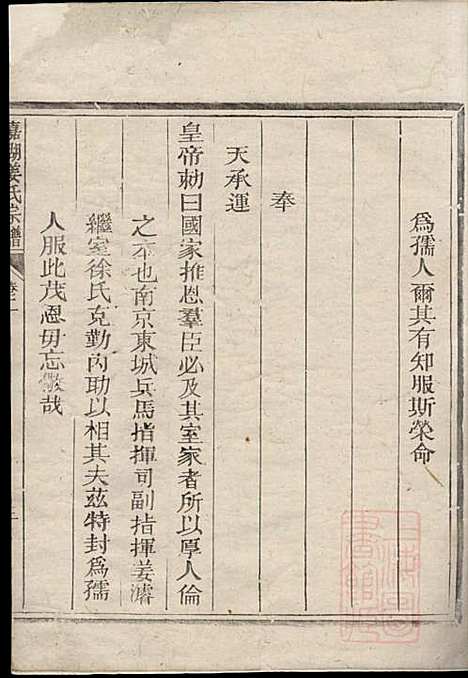 為孺人爾其有知服斯榮命
奉
天承運
皇帝勅曰國家推恩羣臣必及其室家者所以厚人倫
之本也南京東城兵馬指揮司副指揮姜濬
繼室徐氏克勤內助以相其夫茲特封為孺
人服此茂恩毋忘儆哉
湖姜氏宗譜
卷一